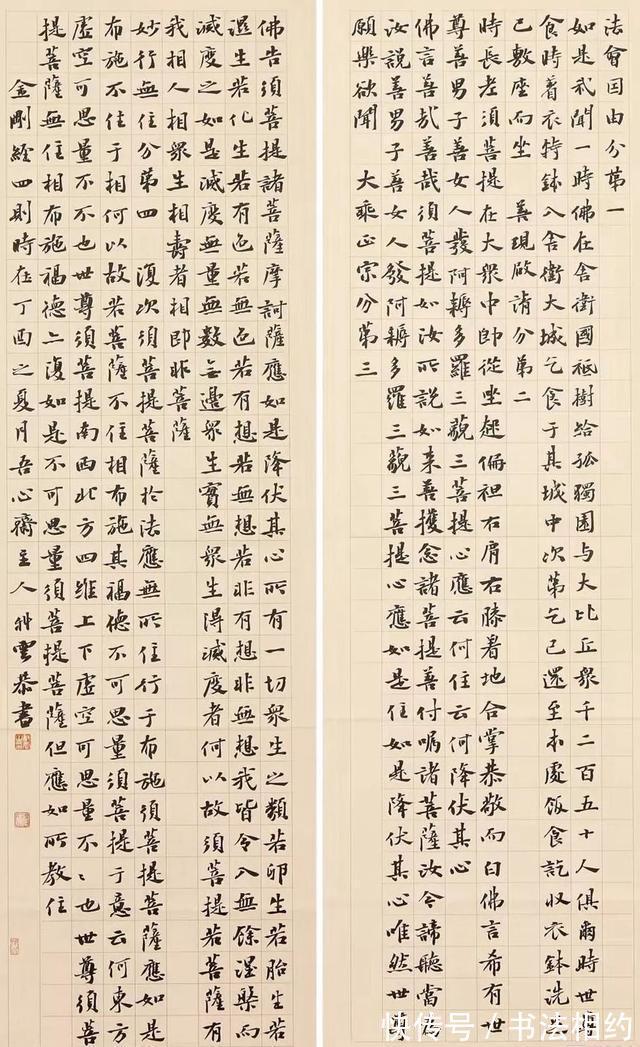 法會因由分第一
如是我聞一時佛在舍衛國祗樹給孤獨園与大比丘衆千二百五十人俱爾時世尊
食時着衣持鉢入舍衛大城乞食于其城中次第乞已還至本處飯食訖收衣鉢洗足
已敷座而坐 善現啟請分第二
時長老須菩提在大衆中即從坐起偏袒右肩右膝着地合掌恭敬而白佛言希有世
尊善男子善女人發阿耨多羅三藐三菩提心應云何住云何降伏其心
佛言善哉善哉須菩提如汝所說如来善護念諸菩提善付嘱諸菩薩汝今諦聽當為
汝說善男子善女人發阿耨多羅三藐三菩提心應如是住如是降伏其心唯然世尊
願樂欲聞 大乘正宗分第三
佛告須菩提諸菩薩摩訶薩應如是降伏其心所有一切衆生之類若卵生若胎生若
濕生若化生若有色若無色若有想若無想若非有想非無想我皆令入無餘涅槃而
滅度之如是滅度無量無數无邊衆生實無衆生得滅度者何以故須菩提若菩薩有
我相人相衆生相壽者相即非菩薩
妙行無住分第四 復次須菩提菩薩於法應無所住行于布施須菩提菩薩應如是
布施不住于相何以故若菩薩不住相布施其福德不可思量須菩提于意云何東方
虛空可思量不不也世尊須菩提南西北方四維上下虛空可思量不〻也世尊須菩
提菩薩無住相布施福德亦復如是不可思量須菩提菩薩但應如所教住
金剛經四則時在丁酉之夏月吾心齋主人雲恭書
快传号/书法相约